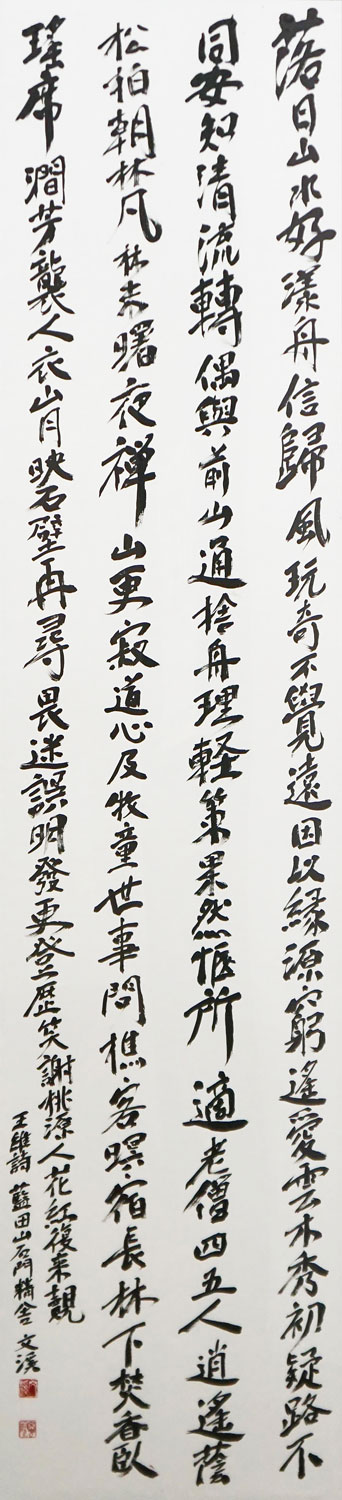 落日山水好漾舟信歸風玩奇不覺遠因以緣源窮遙愛云木秀初疑路不
同安知清流轉偶與前山通捨舟理軽策果然愜所適老僧四五人逍遙蔭
松柏朝梵林未曙夜禅山更寂道心及牧童世事問樵客暝宿長林下焚香臥
瑤席澗芳襲人衣山月映石壁再尋畏迷誤明發更登歴笑謝桃源人花紅復来覿
王維詩 藍田山石門精舍 文溪